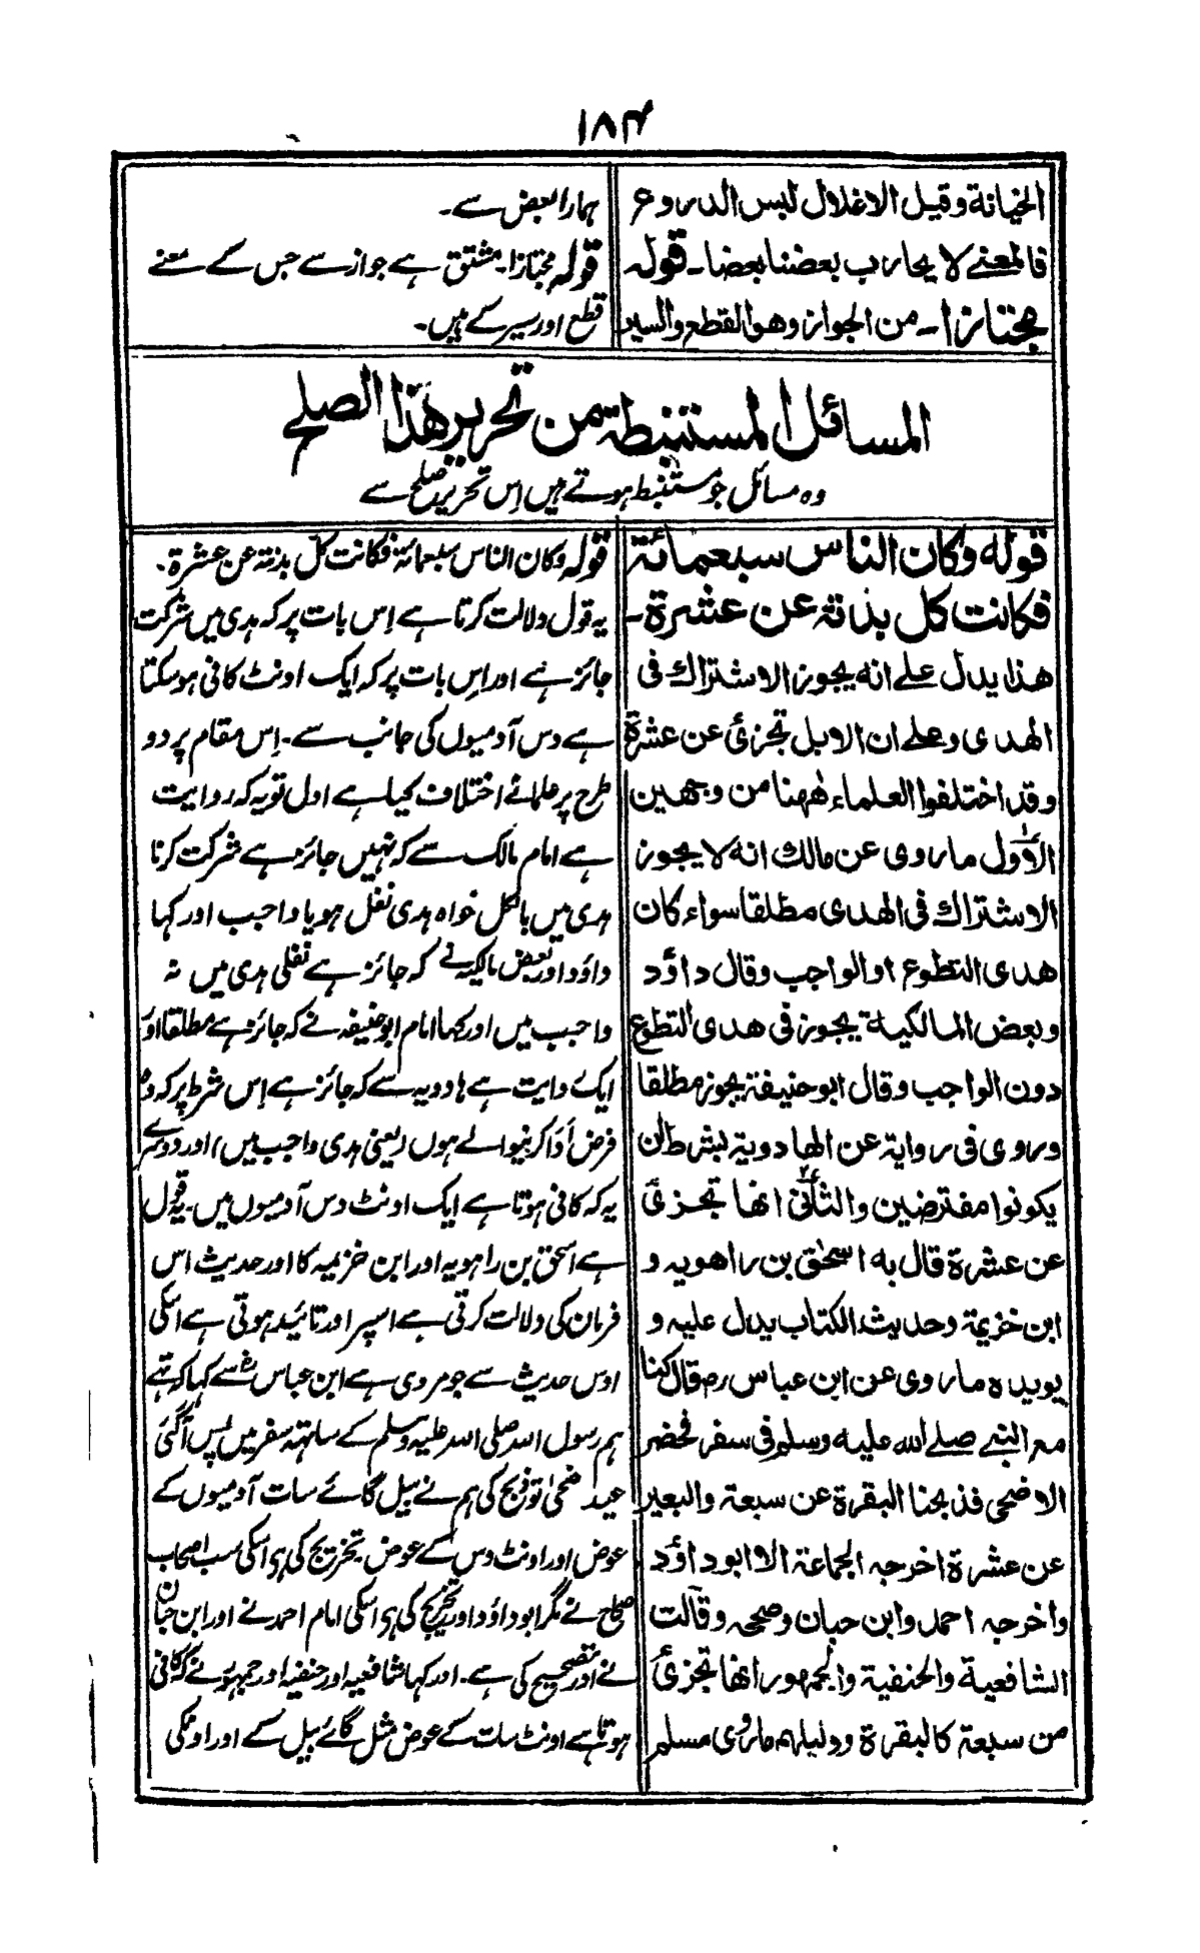 ۱۸۴
الخيانة وقيل الاغلال لبس الدروع
فالمعنے لا يحارب بعضنا بعضا۔ قوله
مجتازا۔ من الجواز وهو القطع والسير
ہمارا بعض سے۔
قولہ مجتازا۔ مشتق ہے جواز سے جس کے معنے
قطع اور سیر کے ہیں۔
المسائل المستنبطة من تحرير هذا الصلح
وہ مسائل جو مستنبط ہوتے ہیں اِس تحریر صلح سے
قوله وكان الناس سبعمائة
فكانت كل بدنة عن عشرة۔
هذا يدل علے انه يجوز الاشتراك فى
الهدى وعلے ان الابل تجزئ عن عشرة
وقد اختلفوا العلماء ههنا من وجهين
الاول ما روى عن مالك انه لا يجوز
الاشتراك فى الهدى مطلقا سواء كان
هدى التطوع او الواجب وقال داؤد
وبعض المالكية يجوز فى هدى التطوع
دون الواجب وقال ابو حنيفة يجوز مطلقا
وروى فى رواية عن الهادوية بشرط ان
يكونوا مفترضين والثانى انها تجزئ
عن عشرة قال به اسحٰق بن راهويه و
ابن خزيمة وحديث الكتاب يدل عليه و
يويده ما روى عن ابن عباس رض قال كنا
مع النبے صلے الله عليه وسلم فى سفر فحضر
الاضحى فذبحنا البقرة عن سبعة والبعير
عن عشرة اخرجه الجماعة الا ابو داؤد
واخرجه احمد وابن حبان وصححه وقالت
الشافعية والحنفية والجمهور انها تجزئ
من سبعة كالبقرة ودليلهم ما روى مسلم
قولہ وکان الناس سبعمائۃ فکانت کل بدنۃ عن عشرۃ۔
یہ قول دلالت کرتا ہے اِس بات پر کہ ہدی میں شرکت
جائز ہے اور اِس بات پر کہ ایک اونٹ کافی ہوسکتا
ہے دس آدمیوں کی جانب سے۔ اِس مقام پر دو
طرح پر علمائے اختلاف کیا ہے اول تو یہ کہ روایت
ہے امام مالک سے کہ نہیں جائز ہے شرکت کرنا
ہدی میں بالکل خواہ ہدی نفل ہو یا واجب اور کہا
داؤد اور بعض مالکیہ نے کہ جائز ہے نفلی ہدی میں نہ
واجب میں اور کہا امام ابو حنیفہ نے کہ جائز ہے مطلقا اور
ایک روایت ہے ہادویہ سے کہ جائز ہے اِس شرط پر کہ وہ
فرض اَدا کرنیوالے ہوں (یعنی ہدی واجب میں) اور دوسرے
یہ کہ کافی ہوتا ہے ایک اونٹ دس آدمیوں میں۔ یہ قول
ہے اسحٰق بن راہویہ اور ابن خزیمہ کا اور حدیث اس
فرمان کی دلالت کرتی ہے اسپر اور تائید ہوتی ہے اسکی
اوس حدیث سے جو مروی ہے ابن عباس رض سے کہا کہ تھے
ہم رسول اللہ صلی اللہ علیہ وسلم کے ساتھ سفر میں پس آگئی
عید ضحٰی تو ذبح کی ہم نے بیل گائے سات آدمیوں کے
عوض اور اونٹ دس کے عوض۔ تخریج کی ہی اسکی سب اصحاب
صحاح نے مگر ابو داؤد اور تخریج کی ہی اسکی امام احمد نے اور ابن حبان
نے اور تصحیح کی ہے۔ اور کہا شافعیہ اور حنفیہ اور جمہور نے کہ کافی
ہوتا ہے اونٹ سات کے عوض مثل گائے بیل کے اور اونکی